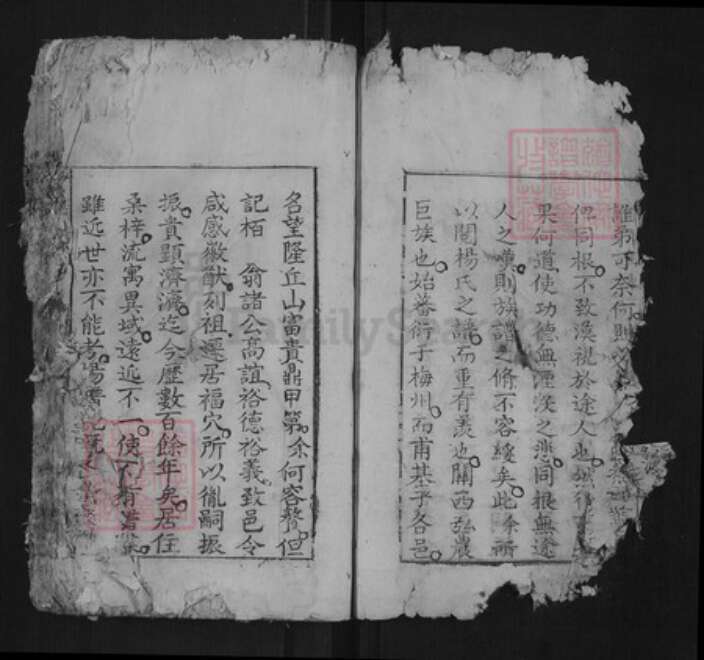 誰第可奈何則
俾同根不致漠視於途人也
果何道使功德無湮沒之悲同根無途
人之嘆則族譜之脩不容緩矣此余所
以閱楊氏之譜而重有羨也關西弘農
巨族也始蕃衍于梅州而甫基于各邑
名望隆丘山富貴鼎甲第余何容贅但
記栢 翁諸公高誼裕德裕義致邑令
咸感徽猷刻祖遷居福穴所以胤嗣振
振貴顯濟濟迄今歷數百餘年矣居住
桑梓流寓異域遠近不一使不有
雖近世亦不能考
FamilySearch